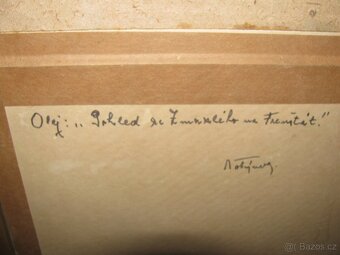 Olej: „Pohled ze Zmrzlého na Frenštát."
© Bazos.cz